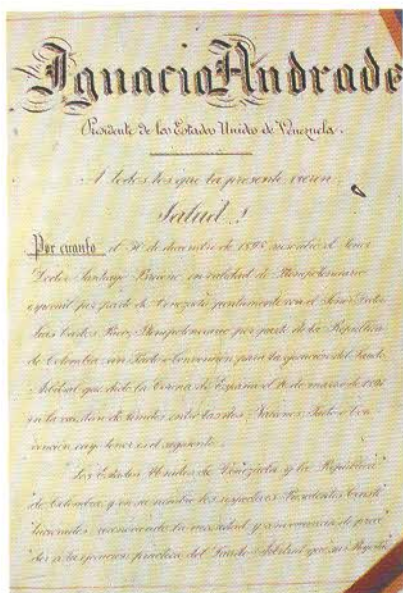 Ignacio Andrade
Presidente de los Estados Unidos de Venezuela.
A todos los que la presente vieren
Salud!
Por cuanto el 30 de diciembre de 1898 suscribió el Señor
Doctor Santiago Briceño en calidad de Plenipotenciario
especial por parte de Venezuela juntamente con el Señor Doctor
Luis Carlos Rico, Plenipotenciario por parte de la República
de Colombia un Pacto o Convención para la ejecución del Laudo
Arbitral que dictó la Corona de España el 16 de marzo de 1891
en la cuestion de límites entre las dos Naciones, Pacto o Con
vención cuyo tenor es el siguiente.
Los Estados Unidos de Venezuela y la República
de Colombia y en su nombre los respectivos Presidentes Consti
tucionales, reconociendo la necesidad y conveniencia de proce
der a la ejecucion práctica del Laudo Arbitral que su Majestad